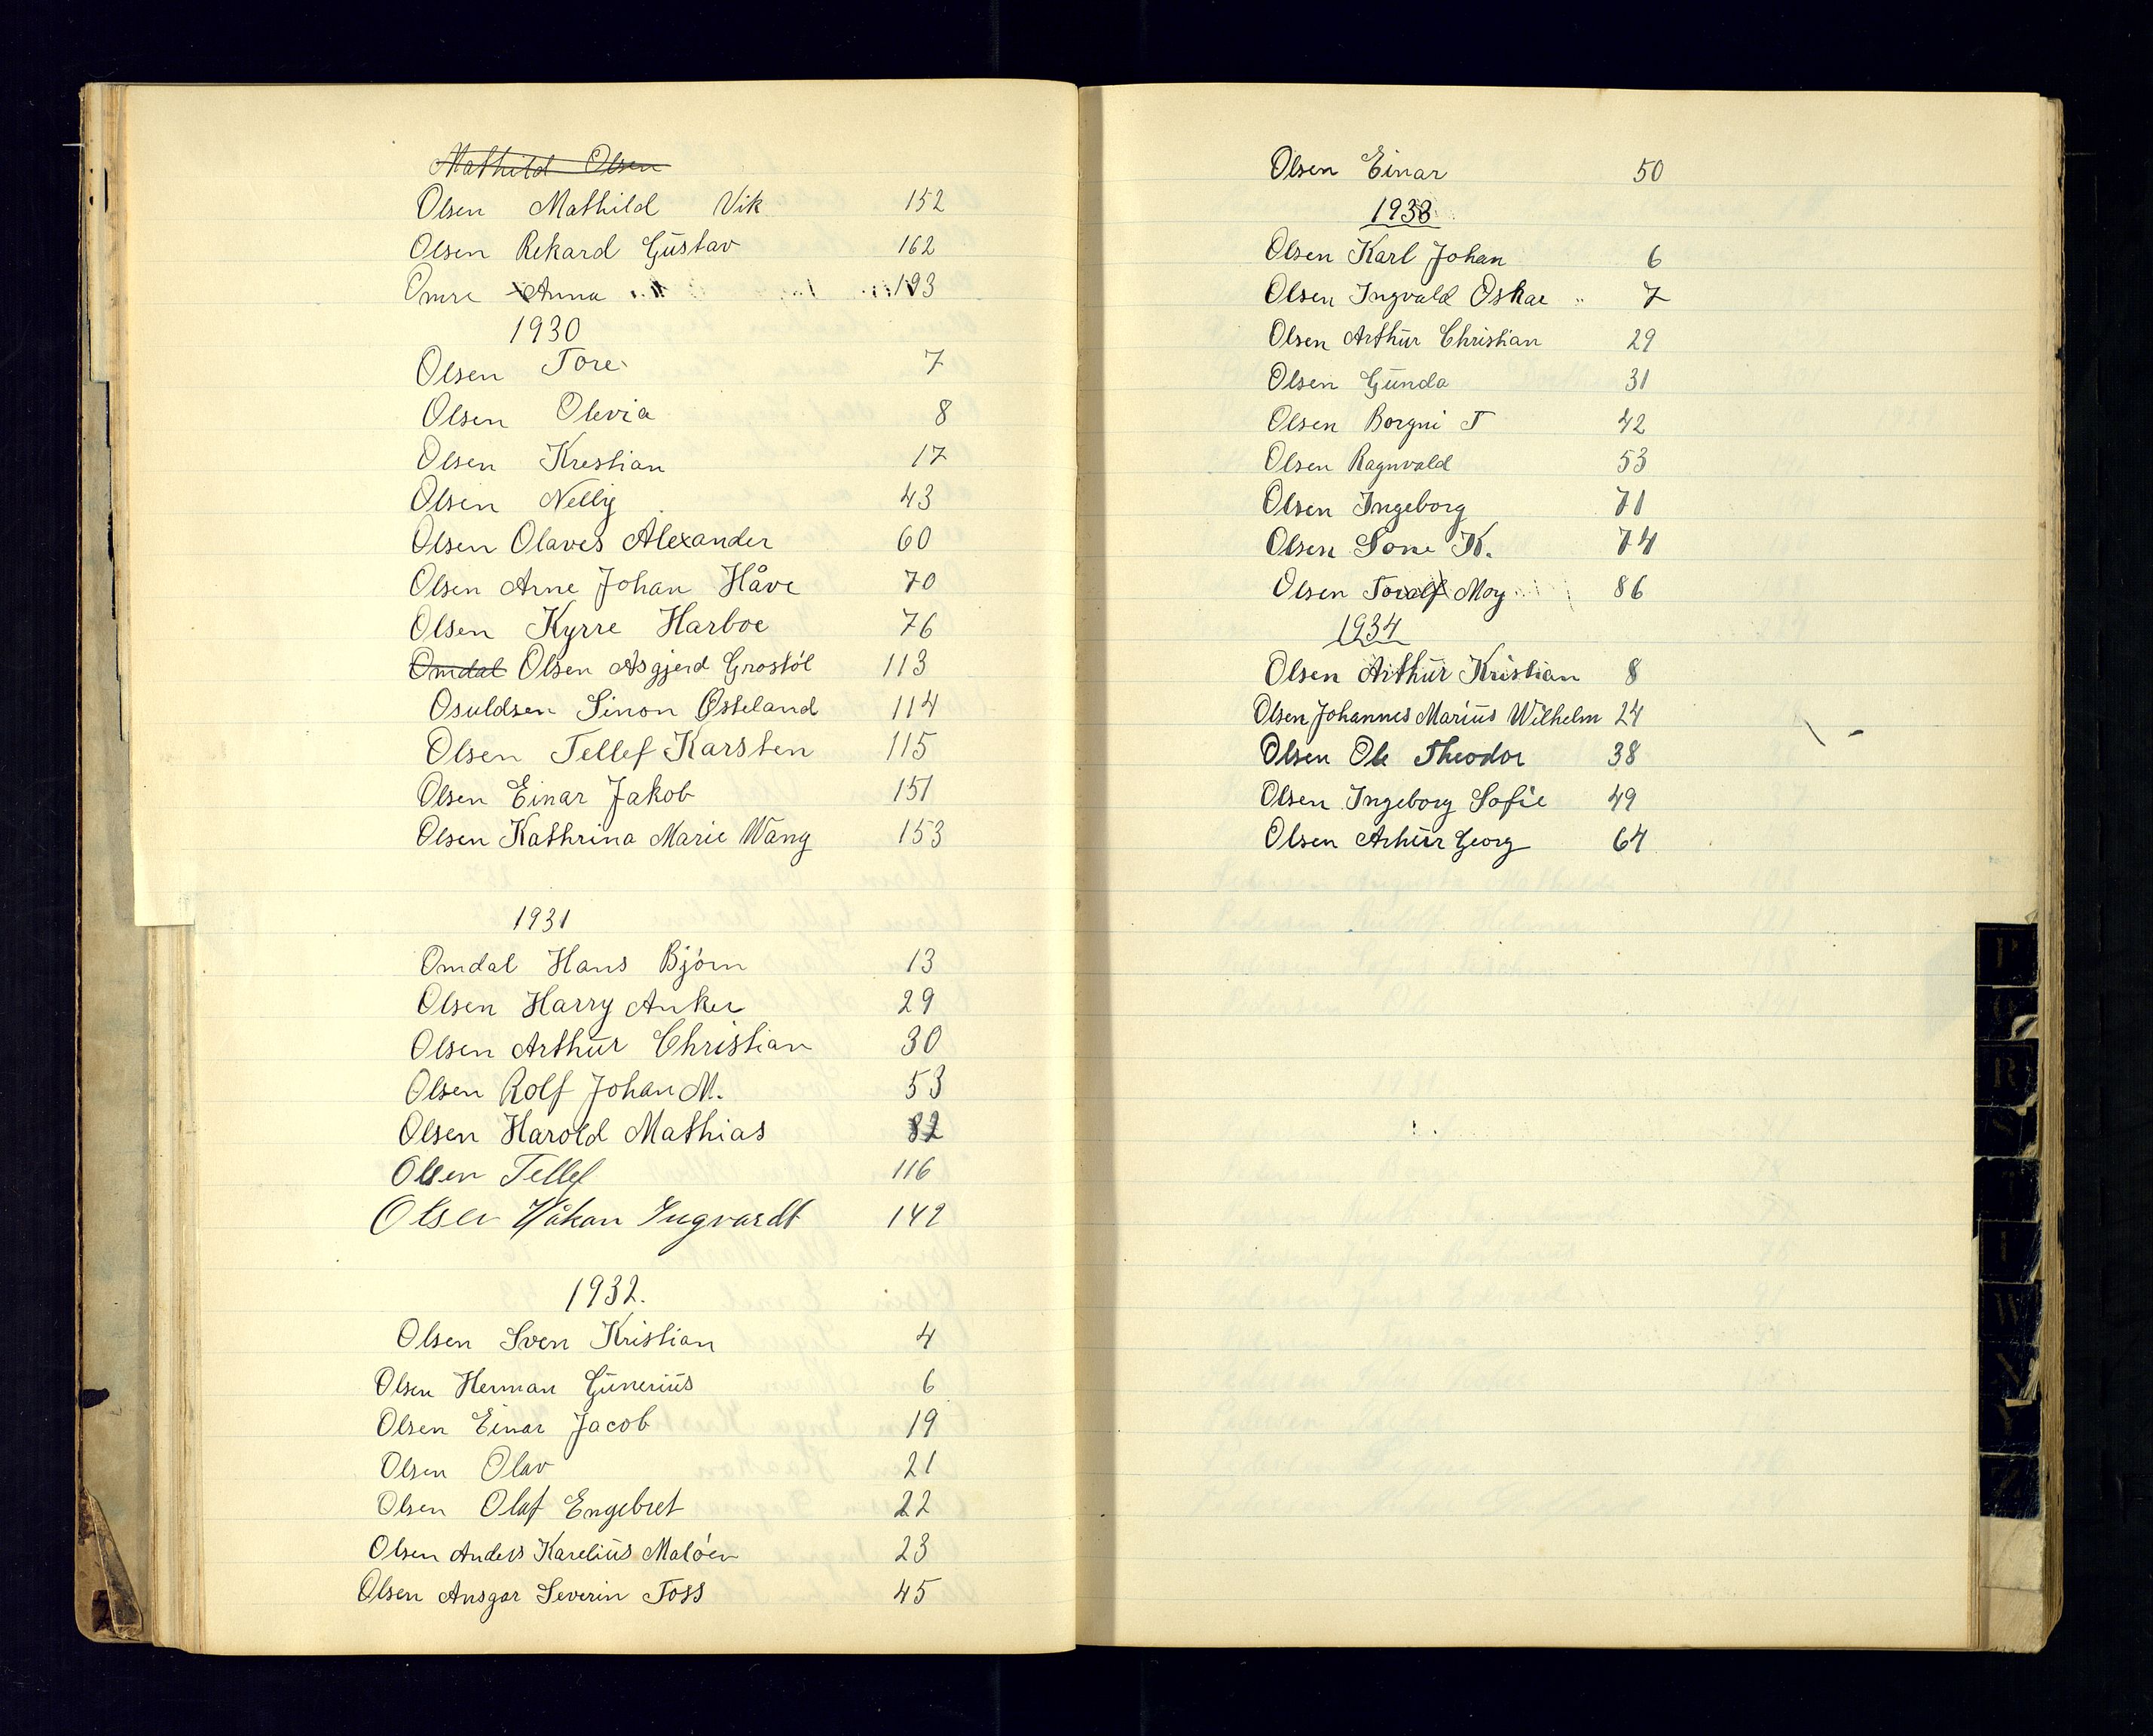 Mathild Olsen
Olsen Mathild Vik 152
Olsen Rekard Gustav 162
Omre Anna 193
1930
Olsen Tore 7
Olsen Olevia 8
Olsen Krestian 17
Olsen Nelly 43
Olsen Olaves Alexander 60
Olsen Arne Johan Håve 70
Olsen Kyrre Harboe 76
Omdal Olsen Asgjerd Grostøl 113
Osuldsen Simon Østeland 114
Olsen Tellef Karsten 115
Olsen Einar Jakob 151
Olsen Kathrina Marie Wang 153
1931
Omdal Hans Bjørn 13
Olsen Harry Anker 29
Olsen Arthur Christian 30
Olsen Rolf Johan M. 53
Olsen Harold Mathias 82
Olsen Tellef 116
Olsen Håkan Ingvardt 142
1932.
Olsen Sven Kristian 4
Olsen Herman Gunerius 6
Olsen Einar Jacob 19
Olsen Olav 21
Olsen Olaf Engebret 22
Olsen Anders Karelius Maløen 23
Olsen Ansgar Severin Foss 45
Olsen Einar 50
1933
Olsen Karl Johan 6
Olsen Ingvald Oskar 7
Olsen Arthur Christian 29
Olsen Gunda 31
Olsen Borgni T 42
Olsen Ragnvald 53
Olsen Ingeborg 71
Olsen Sone K. 74
Olsen Toralf Moy 86
1934
Olsen Arthur Kristian 8
Olsen Johannes Marius Wilhelm 24
Olsen Ole Theodor 38
Olsen Ingeborg Sofie 49
Olsen Arhur Georg 64
P
R
T
W